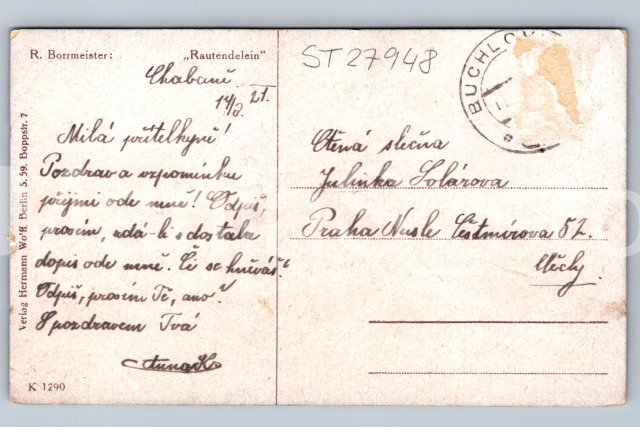 R. Borrmeister: „Rautendelein"
ST 27948
BUCHLOV
Chabaně
14/3 21.
Milá přítelkyně!
Pozdrav a vzpomínku
přijmi ode mně! Odpiš,
prosím, zdá-li s dostala
dopis ode mně. Či se hněváš?
Odpiš, prosím Tě, ano?
S pozdravem Tvá
Anna K
Ctěná slečna
Julinka Solárova
Praha Nusle Čestmírova 52.
Čechy.
Verlag Hermann Wolff, Berlin S. 59. Boppstr. 7
K 1290